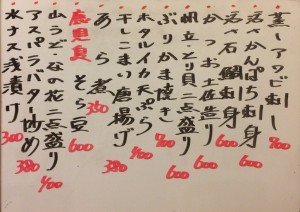 蒸しアワビ刺し 700
活〆かんぱち刺身 600
活〆石鯛刺身 600
かつお土佐造り 600
帆立とり貝二点盛り 600
ぶりかま焼き 700
ホタルイカ天ぷら 400
干しこまい唐揚げ
あら煮 380
鹿児島 そら豆 600
山うどなの花二点盛り 400
アスパラバター炒め 380
水ナス浅漬け 300